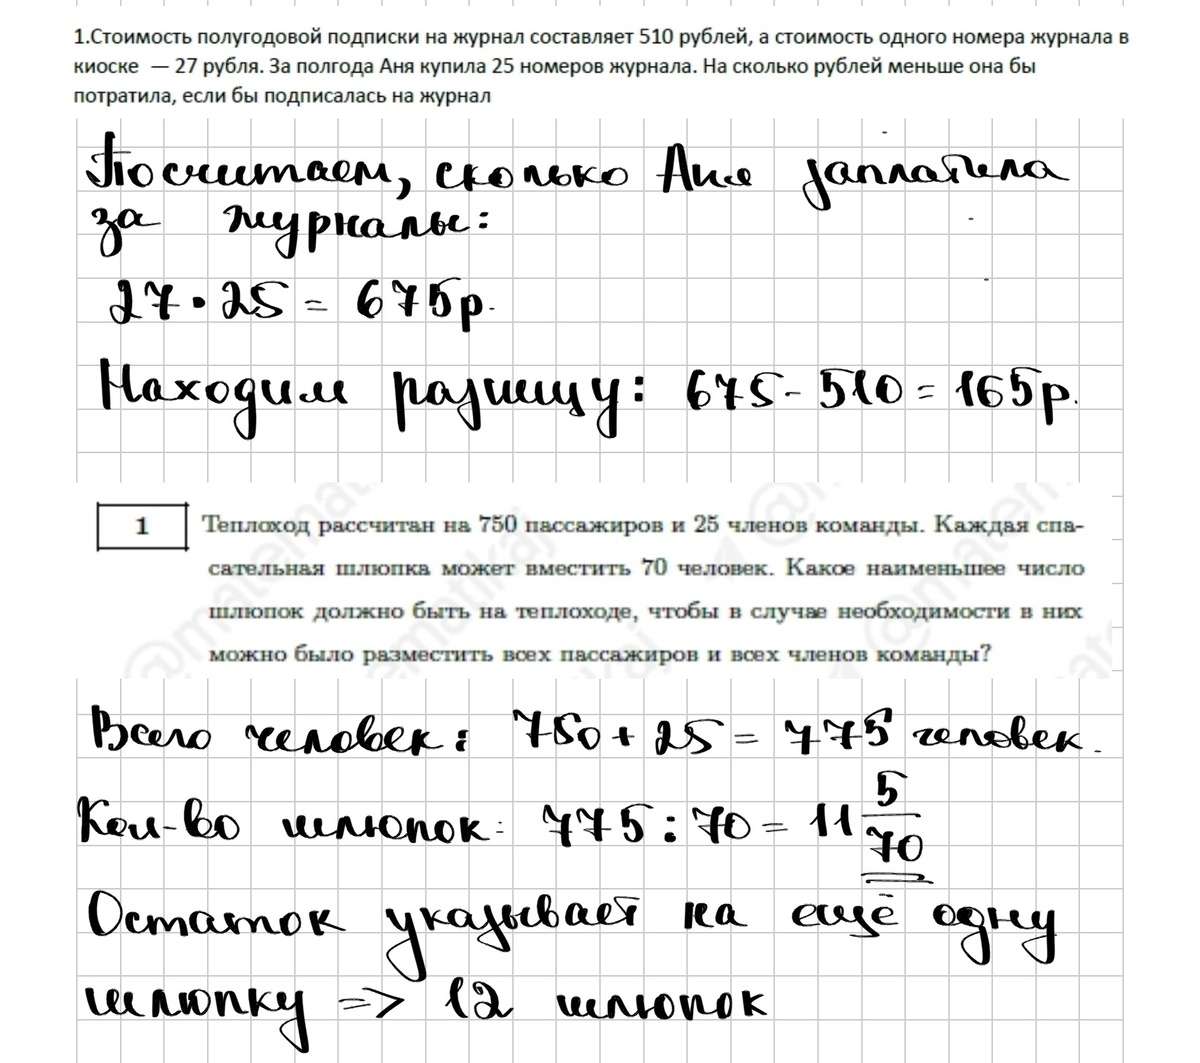 1.Стоимость полугодовой подписки на журнал составляет 510 рублей, а стоимость одного номера журнала в
киоске — 27 рубля. За полгода Аня купила 25 номеров журнала. На сколько рублей меньше она бы
потратила, если бы подписалась на журнал
Посчитаем, сколько Аня заплатила
за журналы:
27 · 25 = 675р.
Находим разницу: 675 - 510 = 165р.
1 Теплоход рассчитан на 750 пассажиров и 25 членов команды. Каждая спа-
сательная шлюпка может вместить 70 человек. Какое наименьшее число
шлюпок должно быть на теплоходе, чтобы в случае необходимости в них
можно было разместить всех пассажиров и всех членов команды?
Всего человек: 750 + 25 = 775 человек.
Кол-во шлюпок: 775 : 70 = 11 5/70
Остаток указывает на ещё одну
шлюпку => 12 шлюпок